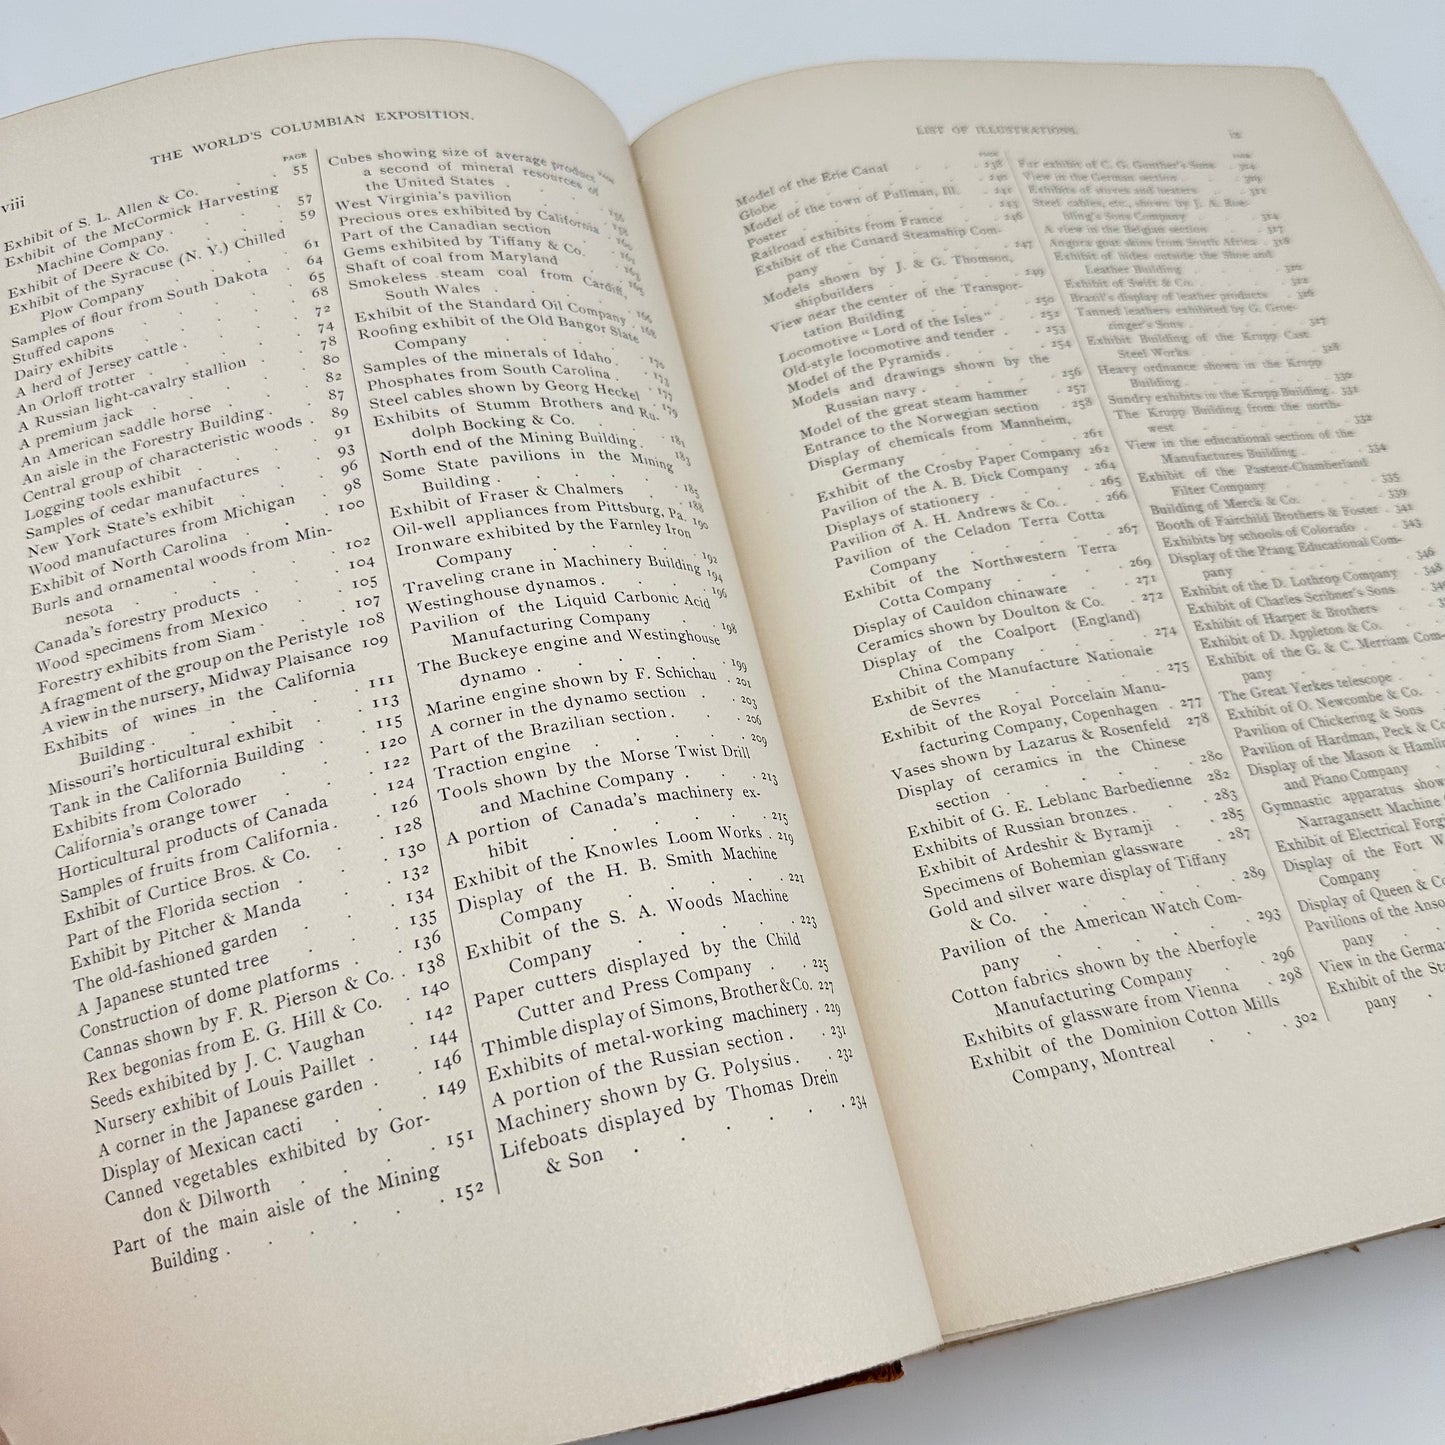 viii
THE WORLD'S COLUMBIAN EXPOSITION.
PAGE
Exhibit of S. L. Allen & Co. 55
Exhibit of the McCormick Harvesting
Machine Company 57
Exhibit of Deere & Co. 59
Exhibit of the Syracuse (N. Y.) Chilled
Plow Company 61
Samples of flour from South Dakota 64
Stuffed capons 65
Dairy exhibits 68
A herd of Jersey cattle 72
An Orloff trotter 74
A Russian light-cavalry stallion 78
A premium jack 80
An American saddle horse 82
An aisle in the Forestry Building 87
Central group of characteristic woods 89
Logging tools exhibit 91
Samples of cedar manufactures 93
New York State's exhibit 96
Wood manufactures from Michigan 98
Exhibit of North Carolina 100
Burls and ornamental woods from Min-
nesota 102
Canada's forestry products 104
Wood specimens from Mexico 105
Forestry exhibits from Siam 107
A fragment of the group on the Peristyle 108
A view in the nursery, Midway Plaisance 109
Exhibits of wines in the California
Building 111
Missouri's horticultural exhibit 113
Tank in the California Building 115
Exhibits from Colorado 120
California's orange tower 122
Horticultural products of Canada 124
Samples of fruits from California 126
Exhibit of Curtice Bros. & Co. 128
Part of the Florida section 130
Exhibit by Pitcher & Manda 132
The old-fashioned garden 134
A Japanese stunted tree 135
Construction of dome platforms 136
Cannas shown by F. R. Pierson & Co. 138
Rex begonias from E. G. Hill & Co. 140
Seeds exhibited by J. C. Vaughan 142
Nursery exhibit of Louis Paillet 144
A corner in the Japanese garden 146
Display of Mexican cacti 149
Canned vegetables exhibited by Gor-
don & Dilworth 151
Part of the main aisle of the Mining
Building 152
PAGE
Cubes showing size of average product
a second of mineral resources of
the United States
West Virginia's pavilion
Precious ores exhibited by California
Part of the Canadian section
Gems exhibited by Tiffany & Co. 163
Shaft of coal from Maryland 165
Smokeless steam coal from Cardiff,
South Wales 166
Exhibit of the Standard Oil Company 168
Roofing exhibit of the Old Bangor Slate
Company 170
Samples of the minerals of Idaho 173
Phosphates from South Carolina 177
Steel cables shown by Georg Heckel 179
Exhibits of Stumm Brothers and Ru-
dolph Bocking & Co. 181
North end of the Mining Building 183
Some State pavilions in the Mining
Building 185
Exhibit of Fraser & Chalmers 188
Oil-well appliances from Pittsburg, Pa. 190
Ironware exhibited by the Farnley Iron
Company 192
Traveling crane in Machinery Building 194
Westinghouse dynamos 196
Pavilion of the Liquid Carbonic Acid
Manufacturing Company 198
The Buckeye engine and Westinghouse
dynamo 199
Marine engine shown by F. Schichau 201
A corner in the dynamo section 203
Part of the Brazilian section 206
Traction engine 209
Tools shown by the Morse Twist Drill
and Machine Company 213
A portion of Canada's machinery ex-
hibit 215
Exhibit of the Knowles Loom Works 219
Display of the H. B. Smith Machine
Company 221
Exhibit of the S. A. Woods Machine
Company 223
Paper cutters displayed by the Child
Cutter and Press Company 225
Thimble display of Simons, Brother & Co. 227
Exhibits of metal-working machinery 229
A portion of the Russian section 231
Machinery shown by G. Polysius 232
Lifeboats displayed by Thomas Drein
& Son 234
LIST OF ILLUSTRATIONS.
ix
PAGE
Model of the Erie Canal 238
Globe 240
Model of the town of Pullman, Ill. 241
Poster 243
Railroad exhibits from France 246
Exhibit of the Cunard Steamship Com-
pany 247
Models shown by J. & G. Thomson,
shipbuilders 249
View near the center of the Transpor-
tation Building 250
Locomotive "Lord of the Isles" 252
Old-style locomotive and tender 253
Model of the Pyramids 254
Models and drawings shown by the
Russian navy 256
Model of the great steam hammer 257
Entrance to the Norwegian section 258
Display of chemicals from Mannheim,
Germany 261
Exhibit of the Crosby Paper Company 262
Pavilion of the A. B. Dick Company 264
Displays of stationery 265
Pavilion of A. H. Andrews & Co. 266
Pavilion of the Celadon Terra Cotta
Company 267
Exhibit of the Northwestern Terra
Cotta Company 269
Display of Cauldon chinaware 271
Ceramics shown by Doulton & Co. 272
Display of the Coalport (England)
China Company 274
Exhibit of the Manufacture Nationaie
de Sevres 275
Exhibit of the Royal Porcelain Manu-
facturing Company, Copenhagen 277
Vases shown by Lazarus & Rosenfeld 278
Display of ceramics in the Chinese
section 280
Exhibit of G. E. Leblanc Barbedienne 282
Exhibits of Russian bronzes 283
Exhibit of Ardeshir & Byramji 285
Specimens of Bohemian glassware 287
Gold and silver ware display of Tiffany
& Co. 289
Pavilion of the American Watch Com-
pany 293
Cotton fabrics shown by the Aberfoyle
Manufacturing Company 296
Exhibits of glassware from Vienna 298
Exhibit of the Dominion Cotton Mills
Company, Montreal 302
PAGE
Fur exhibit of C. G. Gunther's Sons 304
View in the German section 309
Exhibits of stoves and heaters 312
Steel cables, etc., shown by J. A. Roe-
bling's Sons Company 314
A view in the Belgian section 317
Angora goat skins from South Africa 318
Exhibit of hides outside the Shoe and
Leather Building 320
Exhibit of Swift & Co. 322
Brazil's display of leather products 326
Tanned leathers exhibited by G. Groe-
zinger's Sons 327
Exhibit Building of the Krupp Cast
Steel Works 328
Heavy ordnance shown in the Krupp
Building 330
Sundry exhibits in the Krupp Building 331
The Krupp Building from the north-
west 332
View in the educational section of the
Manufactures Building 334
Exhibit of the Pasteur-Chamberland
Filter Company 335
Building of Merck & Co. 339
Booth of Fairchild Brothers & Foster 341
Exhibits by schools of Colorado 343
Display of the Prang Educational Com-
pany 346
Exhibit of the D. Lothrop Company 348
Exhibit of Charles Scribner's Sons
Exhibit of Harper & Brothers
Exhibit of D. Appleton & Co.
Exhibit of the G. & C. Merriam Com-
pany
The Great Yerkes telescope
Exhibit of O. Newcombe & Co.
Pavilion of Chickering & Sons
Pavilion of Hardman, Peck & Co
Display of the Mason & Hamlin
and Piano Company
Gymnastic apparatus show
Narragansett Machine
Exhibit of Electrical Forgi
Display of the Fort W
Company
Display of Queen & Co
Pavilions of the Anso
pany
View in the Germa
Exhibit of the Sta
pany